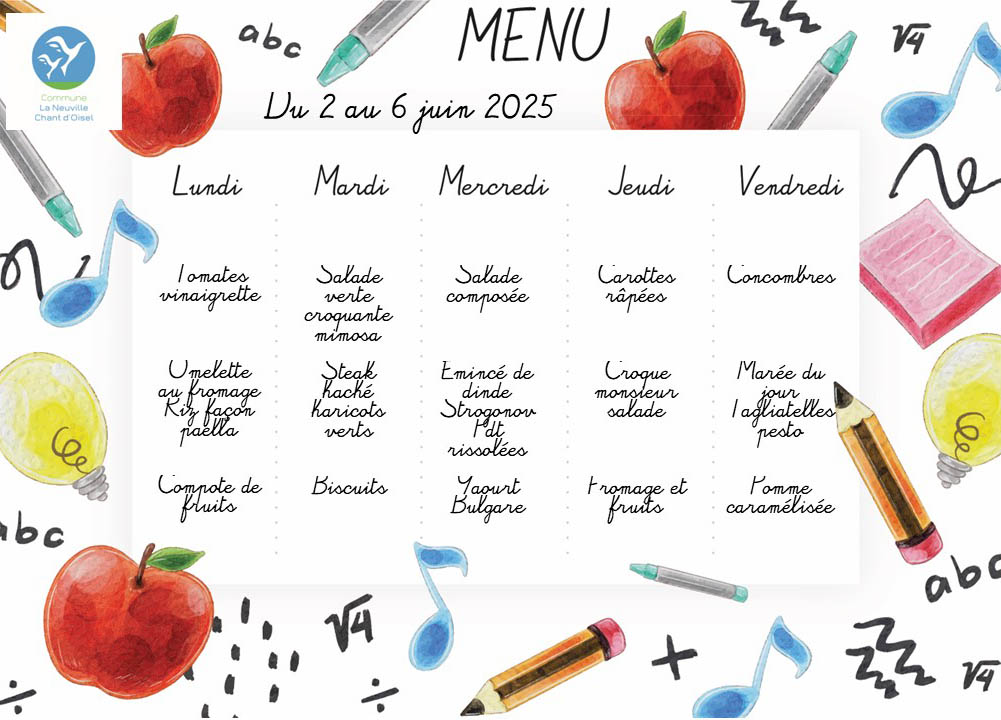 Commune
La Neuville
Chant d'Oisel
MENU
Du 2 au 6 juin 2025
abc
√4
Lundi
Tomates
vinaigrette
Omelette
au fromage
Riz façon
paëlla
Compote de
fruits
Mardi
Salade
verte
croquante
mimosa
Steak
haché
haricots
verts
Biscuits
Mercredi
Salade
composée
Emincé de
dinde
Strogonov
Pdt
rissolées
Yaourt
Bulgare
Jeudi
Carottes
râpées
Croque
monsieur
salade
Fromage et
fruits
Vendredi
Concombres
Marée du
jour
Tagliatelles
pesto
Pomme
caramélisée
abc
abc
√4
÷
÷
+
√4